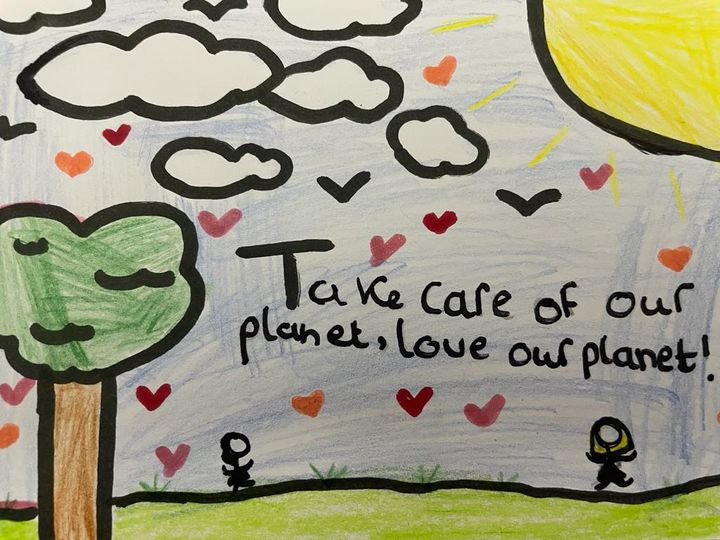 Take care of our
planet, love our planet!